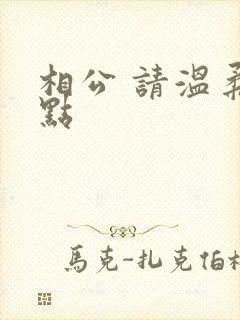 相公 請溫柔
點
馬克-扎克伯格